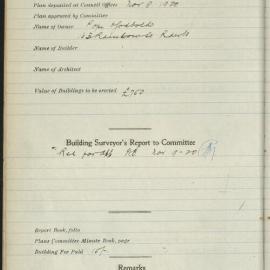 Plan deposited at Council Offices Nov 8 1920
Plan approved by Committee
Name of Owner
Name of Builder
Name of Architect
Value of Buildings to be erected £760
Building Surveyor's Report to Committee
Nov 9-20
Report Book, folio
Plans Committee Minute Book, page
Building Fee Paid
Remarks